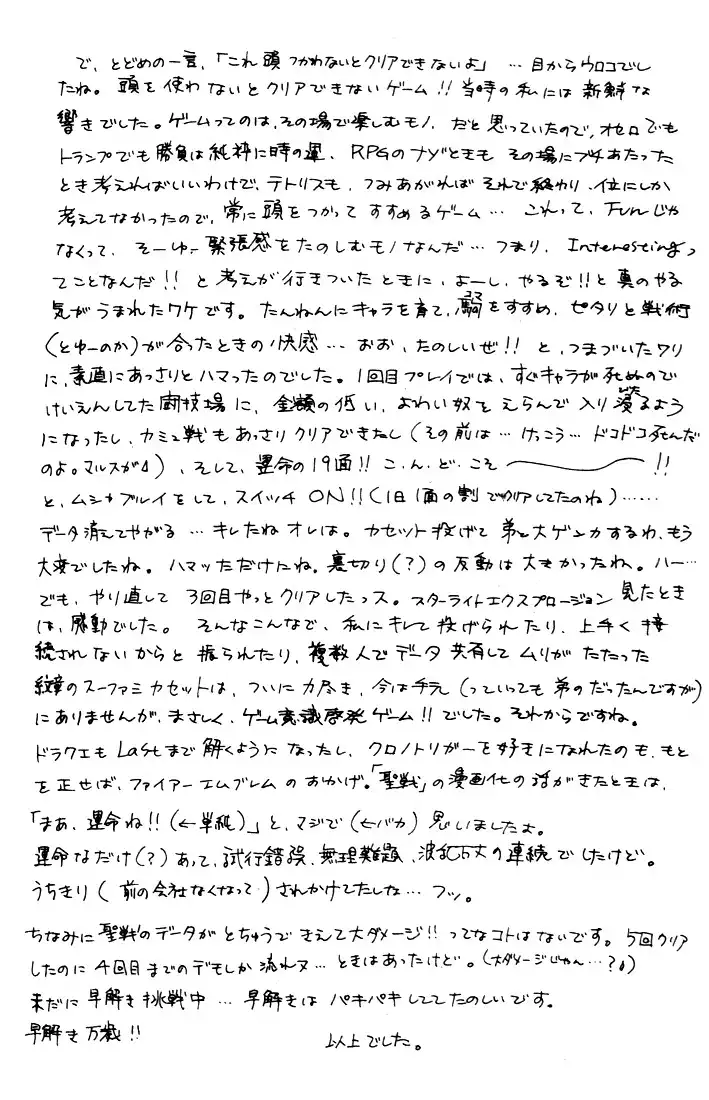 で、とどめの一言、「これ頭つかわないとクリアできないよ」…目からウロコでし
たね。頭を使わないとクリアできないゲーム!!当時の私には新鮮な
響きでした。ゲームってのは、その場で楽しむモノ、だと思っていたので、オセロでも
トランプでも勝負は紙神に時の運、RPGのナゾときも その場にブチあたった
とき考えればいいわけで、テトリスも、つみあがれば それで終わり、位にしか
考えてなかったので、常に頭をつかって すすめるゲーム… これって、Funじゃ
なくって、そーゆー緊張感をたのしむモノなんだ…つまり、Interestingっ
てことなんだ!!と考えが行きついたときに、よーし、やるぞ!!と真のやる
気がうまれたワケです。たんねんにキャラを育て、駒をすすめ、ピタリと戦術
(とゆーのか)が合ったときの快感…おお、たのしいぜ!!と、つまづいたワリ
に、素直にあっさりとハマったのでした。1回目プレイでは、すぐキャラが死ぬので
けいえんしてた闘技場に、金額の低い、よわい奴をえらんで入り浸るよう
になったし、カミュ戦もあっさりクリアできたし(その前は…けっこう…ドコドコ死んだ
のよ。マルスが)、そして、運命の19面!!こ.ん.ど.こそ――!!
と、ムシャプレイをして、スイッチON!!(1日1面の割でクリアしてたのね)……
データ消えてやがる…キレたねオレは。カセット投げて弟と大ゲンカするわ、もう
大変でしたね。ハマッただけにね。裏切り(?)の反動は大きかったね。ハー…
でも、やり直して 3回目やっとクリアしたっス。スターライトエクスプロージョン見たとき
は、感動でした。そんなこんなで、私にキレて投げられたり、上手く接
続されないからと振られたり、複数人でデータ共有してムリがたたった
紋章のスーファミカセットは、ついに力尽き、今は手元(っていっても弟のだったんですが)
にありませんが、まさしく、ゲーム意識啓発ゲーム!!でした。それからですね。
ドラクエもLastまで解くようになったし、クロノトリガーを好きになれたのも、もと
を正せば、ファイアーエムブレムのおかげ。「聖戦」の漫画化の話がきたときは、
「まあ、運命ね!!(←単純)」と、マジで(←バカ)思いましたよ。
運命なだけ(?)あって、試行錯誤、無理難題、波乱万丈の連続でしたけど。
うちきり(前の会社なくなって)されかけてたしな…フッ。
ちなみに聖戦のデータがとちゅうできえて大ダメージ!!ってなコトはないです。5回クリア
したのに4回目までのデモしか流れヌ…ときはあったけど。(大ダメージじゃん…?)
未だに早解き挑戦中…早解きは パキパキしててたのしいです。
早解き万歳!!
以上でした。